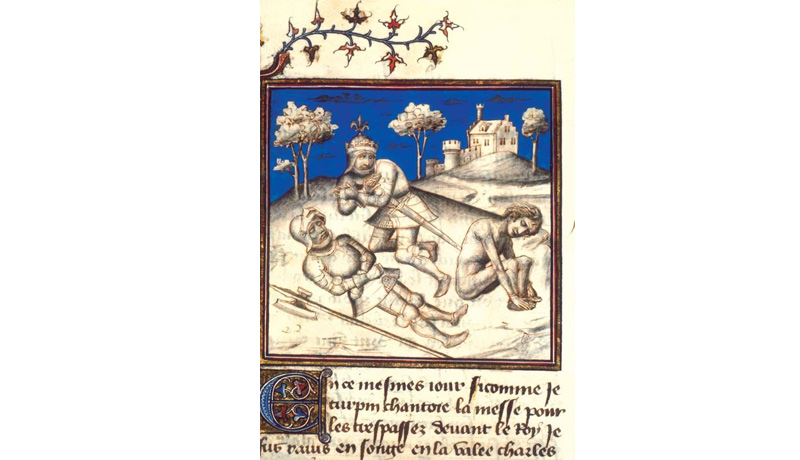 En ce mesmes iour sicomme ie
turpin chantoie la messe pour
les trespassez devant le Roy ie
fus ravis en songe en la valee charles